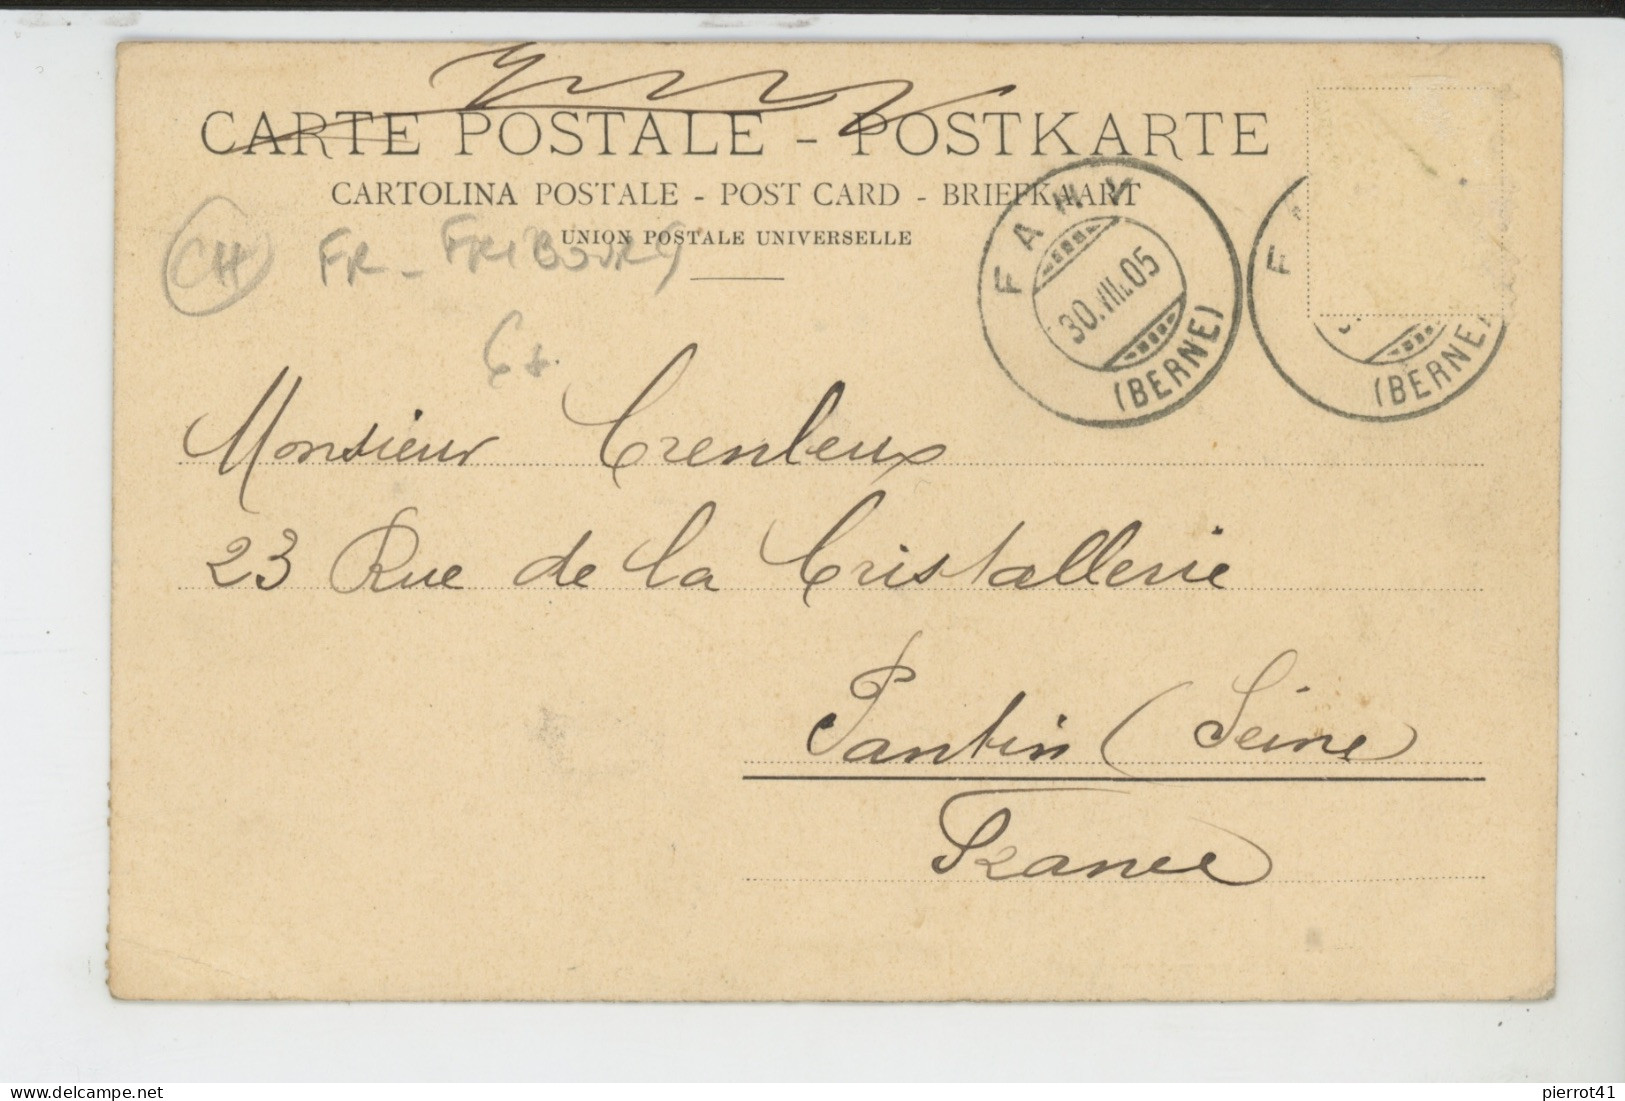 CARTE POSTALE - POSTKARTE
CARTOLINA POSTALE - POST CARD - BRIEFKAART
UNION POSTALE UNIVERSELLE
CH FR - FRIBOURG
FAHY
30.VIII.05
(BERNE)
F
(BERNE)
Monsieur Crenleux
23 Rue de la Cristallerie
Pantin (Seine)
France
www.delcampe.net
pierrot41